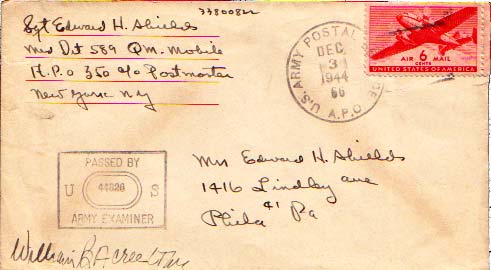 33800822
Sgt Edward H. Shields
Med Det 589 QM. Mobile
A.P.O 350 c/o Postmaster
New York N.Y
U.S. ARMY POSTAL
A.P.O.
DEC
3
1944
AIR 6 MAIL
CENTS
UNITED STATES OF AMERICA
PASSED BY
U 44826 S
ARMY EXAMINER
Mrs Edward H. Shields
1416 Lindley ave
Phila 41 Pa
William B.